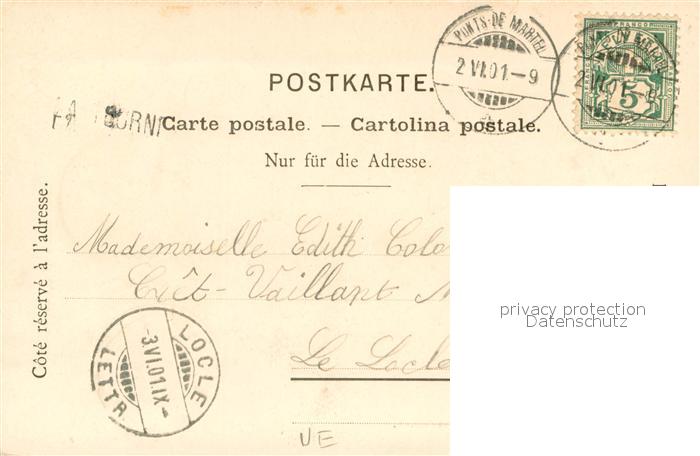 PONTS-DE MARTEL
2 VI.01.-9
FRANCO
5
2 VI.01.-9
POSTKARTE.
Carte postale. — Cartolina postale.
Nur für die Adresse.
Côté réservé à l'adresse.
Mademoiselle Edith
Crêt-Vaillant
Le Locle
privacy protection
Datenschutz
LOCLE
-3 VI.01.IX-
LETTR.
UE